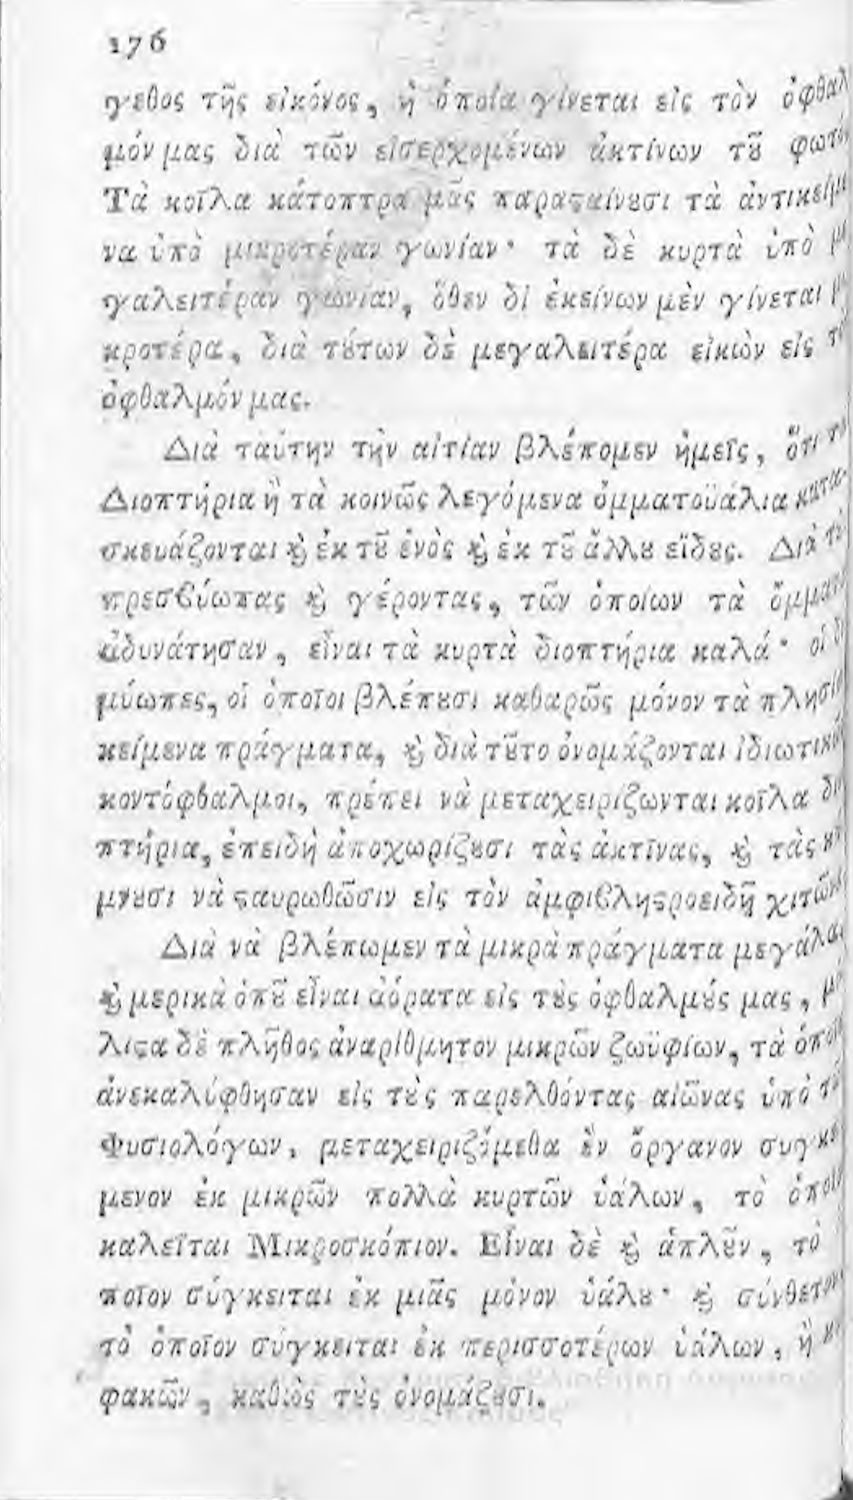 176
γεθος τῆς εἰκόνος, ἡ ὁποία γίνεται εἰς τὸν ὀφθαλ
μόν μας διὰ τῶν εἰσερχομένων ἀκτίνων τȣ͂ φωτὸ
Τὰ κοῖλα κάτοπτρα μᾶς παραϛαίνȣσι τὰ ἀντικείμε
να ὑπὸ μικροτέραν γωνίαν· τὰ δὲ κυρτὰ ὑπὸ
γαλειτέραν γωνίαν, ὅθεν δἰ ἐκείνων μὲν γίνεται
κροτέρα, διὰ τȣ́των δὲ μεγαλειτέρα εἰκὼν εἰς
ὀφθαλμόν μας.
Διὰ ταύτην τὴν αἰτίαν βλέπομεν ἡμεῖς, ὅτι τὰ
Διοπτήρια ἢ τὰ κοινῶς λεγόμενα ὀμματοϋάλια κατα-
σκευάζονται ϗ̀ ἐκ τȣ͂ ἑνὸς ϗ̀ ἐκ τȣ͂ ἄλλȣ εἴδȣς. Διὰ
πρεσϐύωπας ϗ̀ γέροντας, τῶν ὁποίων τὰ ὄμματ
ἀδυνάτησαν, εἶναι τὰ κυρτὰ διοπτήρια καλά· οἱ
μύωπες, οἱ ὁποῖοι βλέπȣσι καθαρῶς μόνον τὰ πλησίο
κείμενα πράγματα, ϗ̀ διὰ τȣ͂το ὀνομάζονται ἰδιωτικ
κοντόφθαλμοι, πρέπει νὰ μεταχειρίζωνται κοῖλα διο
πτήρια, ἐπειδὴ ἀποχωρίζȣσι τὰς ἀκτῖνας, ϗ̀ τὰς
μνȣσι νὰ ϛαυρωθῶσιν εἰς τὸν ἀμφιϐληϛροειδῆ χιτῶν
Διὰ νὰ βλέπωμεν τὰ μικρὰ πράγματα μεγάλα
ϗ̀ μερικὰ ὁπȣ͂ εἶναι ἀόρατα εἰς τȣ̀ς ὀφθαλμȣ́ς μας,
λιϛα δὲ πλῆθος ἀναρίθμητον μικρῶν ζωϋφίων, τὰ ὁποῖ
ἀνεκαλύφθησαν εἰς τȣ̀ς παρελθόντας αἰῶνας ὑπὸ
Φυσιολόγων, μεταχειριζόμεθα ἓν ὄργανον συγκε
μενον ἐκ μικρῶν πολλὰ κυρτῶν ὑάλων, τὸ ὁποῖ
καλεῖται Μικροσκόπιον. Εἶναι δὲ ϗ̀ ἁπλȣ͂ν, τὸ
ποῖον σύγκειται ἐκ μιᾶς μόνον ὑάλȣ· ϗ̀ σύνθετον
τὸ ὁποῖον σύγκειται ἐκ περισσοτέρων ὑάλων, ἢ
φακῶν, καθὼς τȣ̀ς ὀνομάζȣσι.